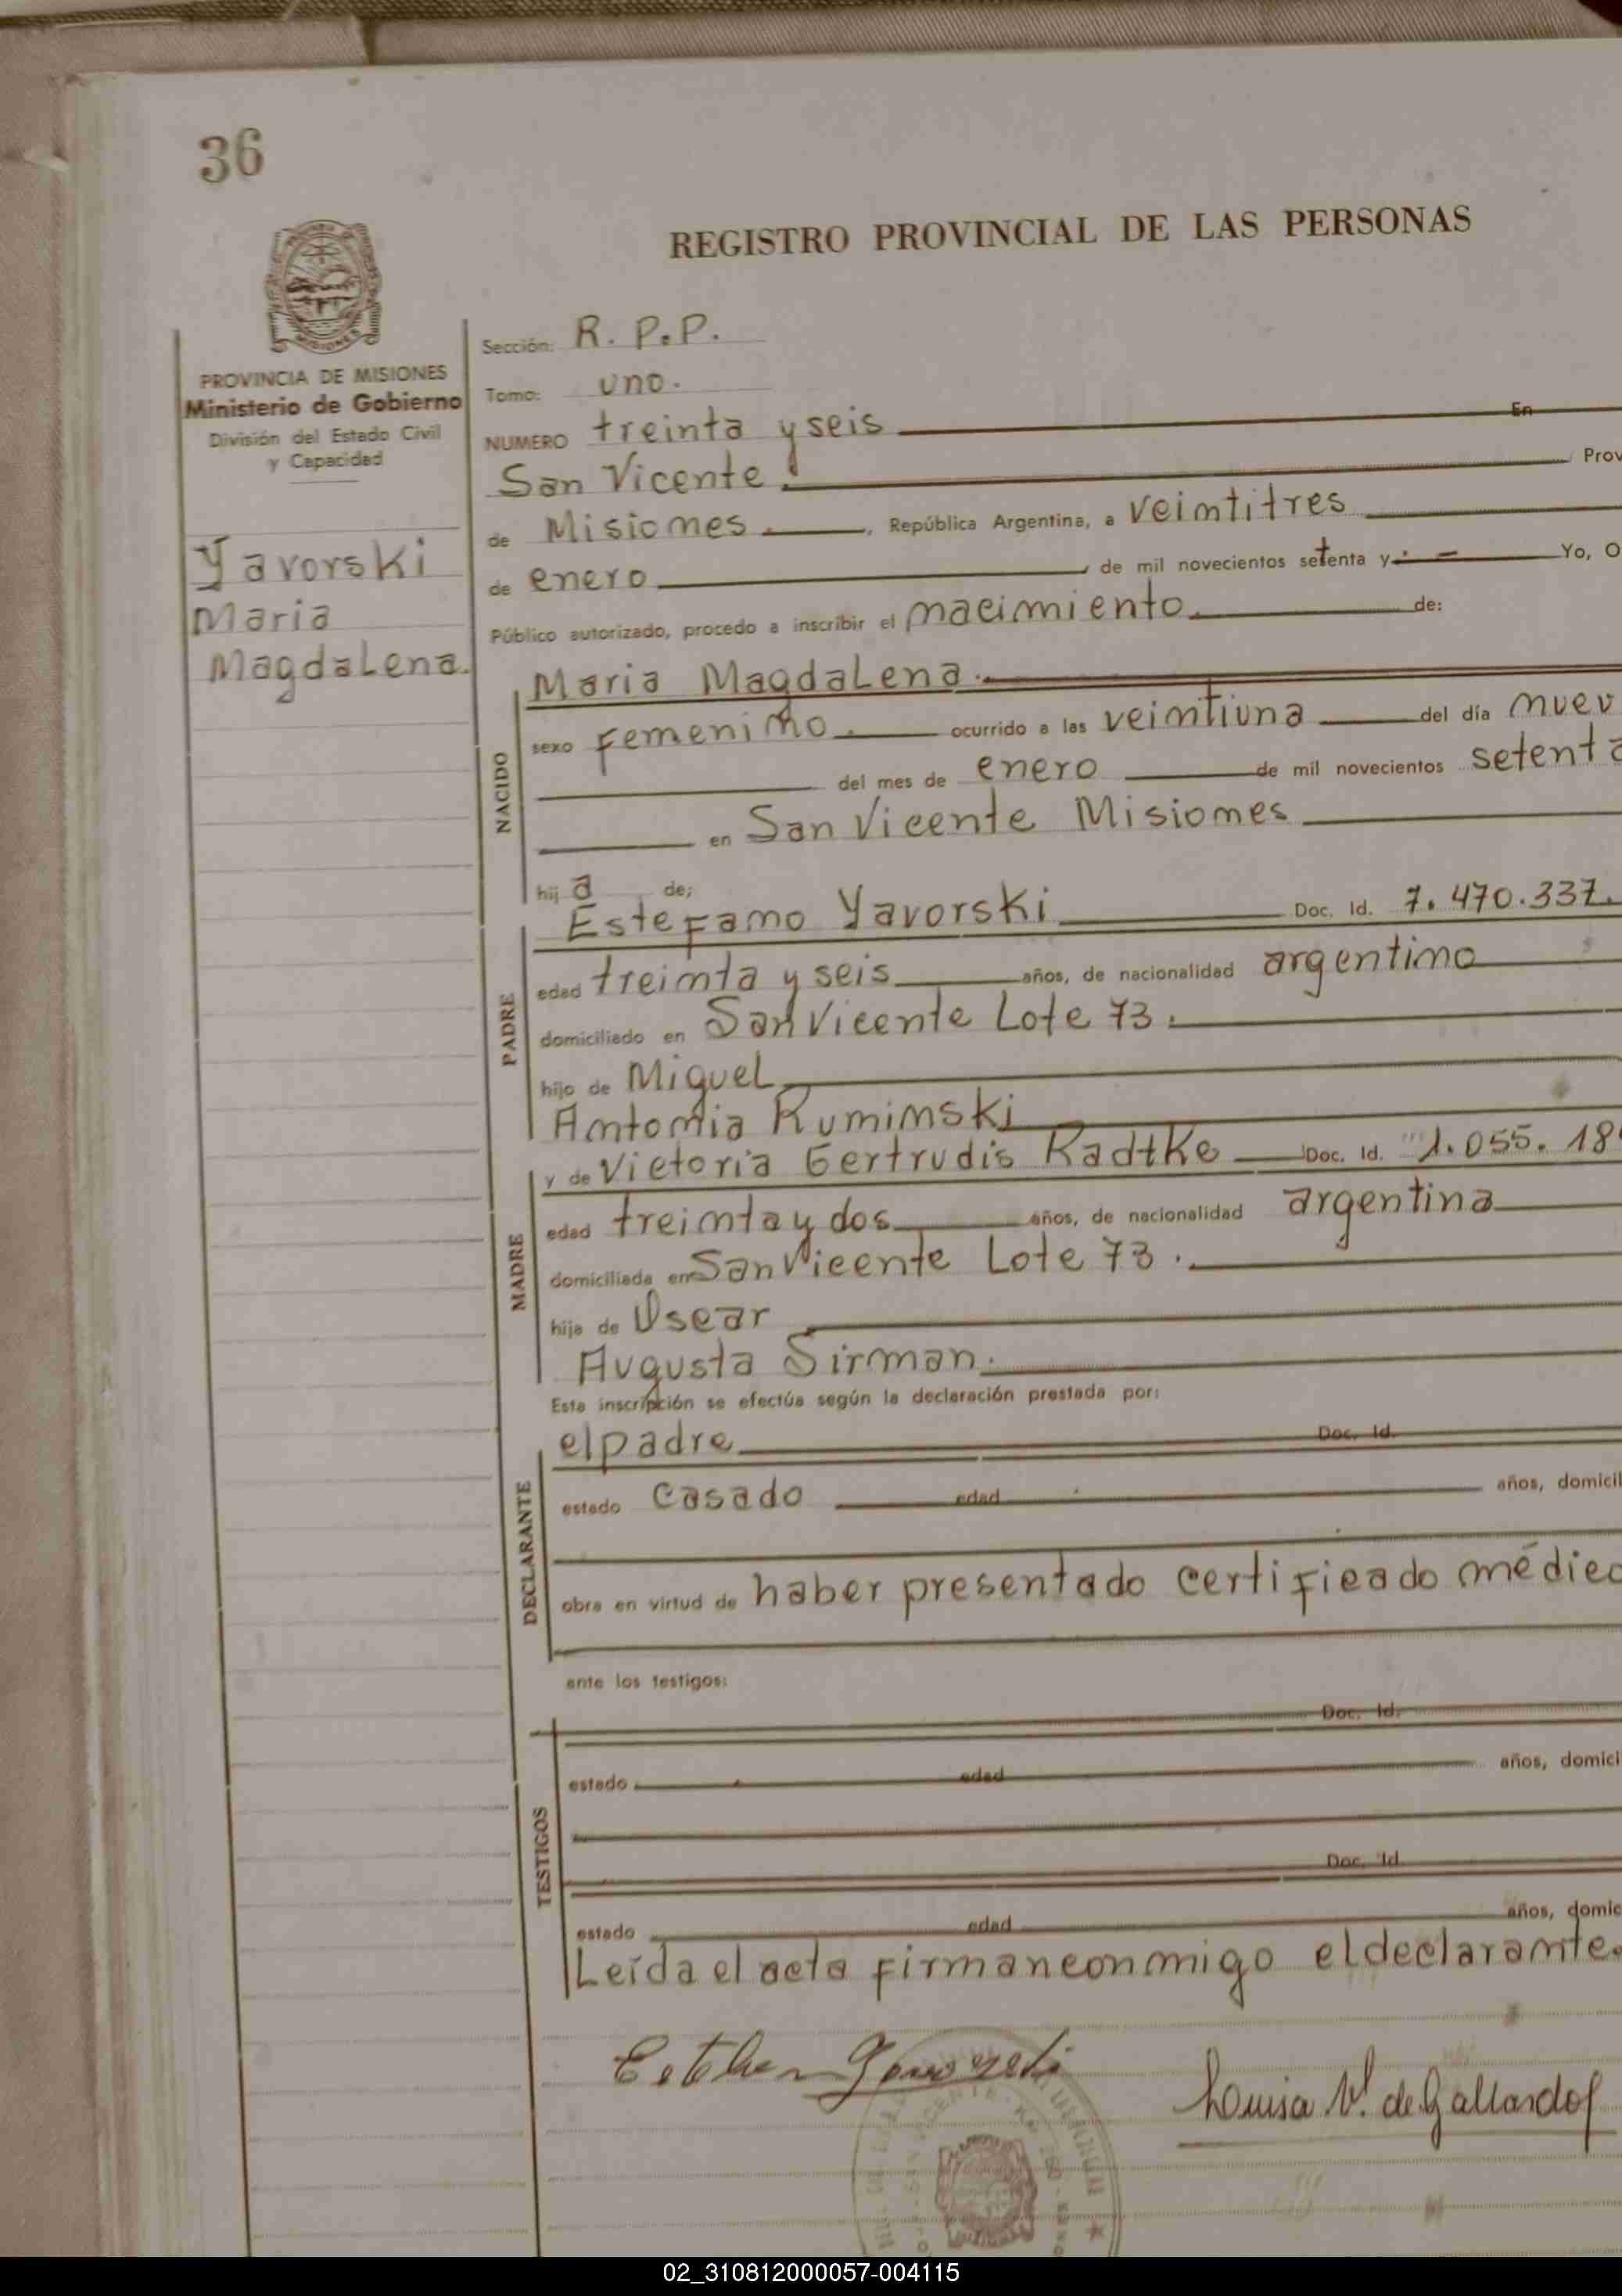 36
REGISTRO PROVINCIAL DE LAS PERSONAS
MISIONES
PROVINCIA DE MISIONES
Ministerio de Gobierno
División del Estado Civil
y Capacidad
Yavorski
Maria
Magdalena.
Sección: R. P. P.
Tomo: uno.
NUMERO treinta y seis En
San Vicente. Prov
de Misiones. , República Argentina, a veintitres
de enero , de mil novecientos setenta y . - Yo, O
Público autorizado, procedo a inscribir el nacimiento. de:
NACIDO
Maria Magdalena.
sexo Femenino. ocurrido a las veintiuna del día nuev
del mes de enero de mil novecientos setenta
en San Vicente Misiones
hij a de;
PADRE
Estefano Yavorski Doc. Id. 7.470.337.
edad treinta y seis años, de nacionalidad argentino
domiciliado en San Vicente Lote 73.
hijo de Miguel
Antonia Ruminski
MADRE
y de Victoria Gertrudis Radtke Doc. Id. 1.055.18
edad treinta y dos años, de nacionalidad argentina
domiciliada en San Vicente Lote 73.
hija de Oscar
Augusta Sirman.
Esta inscripción se efectúa según la declaración prestada por:
DECLARANTE
el padre Doc. Id.
estado casado edad años, domicil
obra en virtud de haber presentado certificado médico
ante los testigos:
TESTIGOS
Doc. Id.
estado edad años, domici
Doc. Id
estado edad años, domic
Leída el acta firman conmigo el declarante.
Esteban Yavorski
Louisa V. de Gallardo
02_310812000057-004115